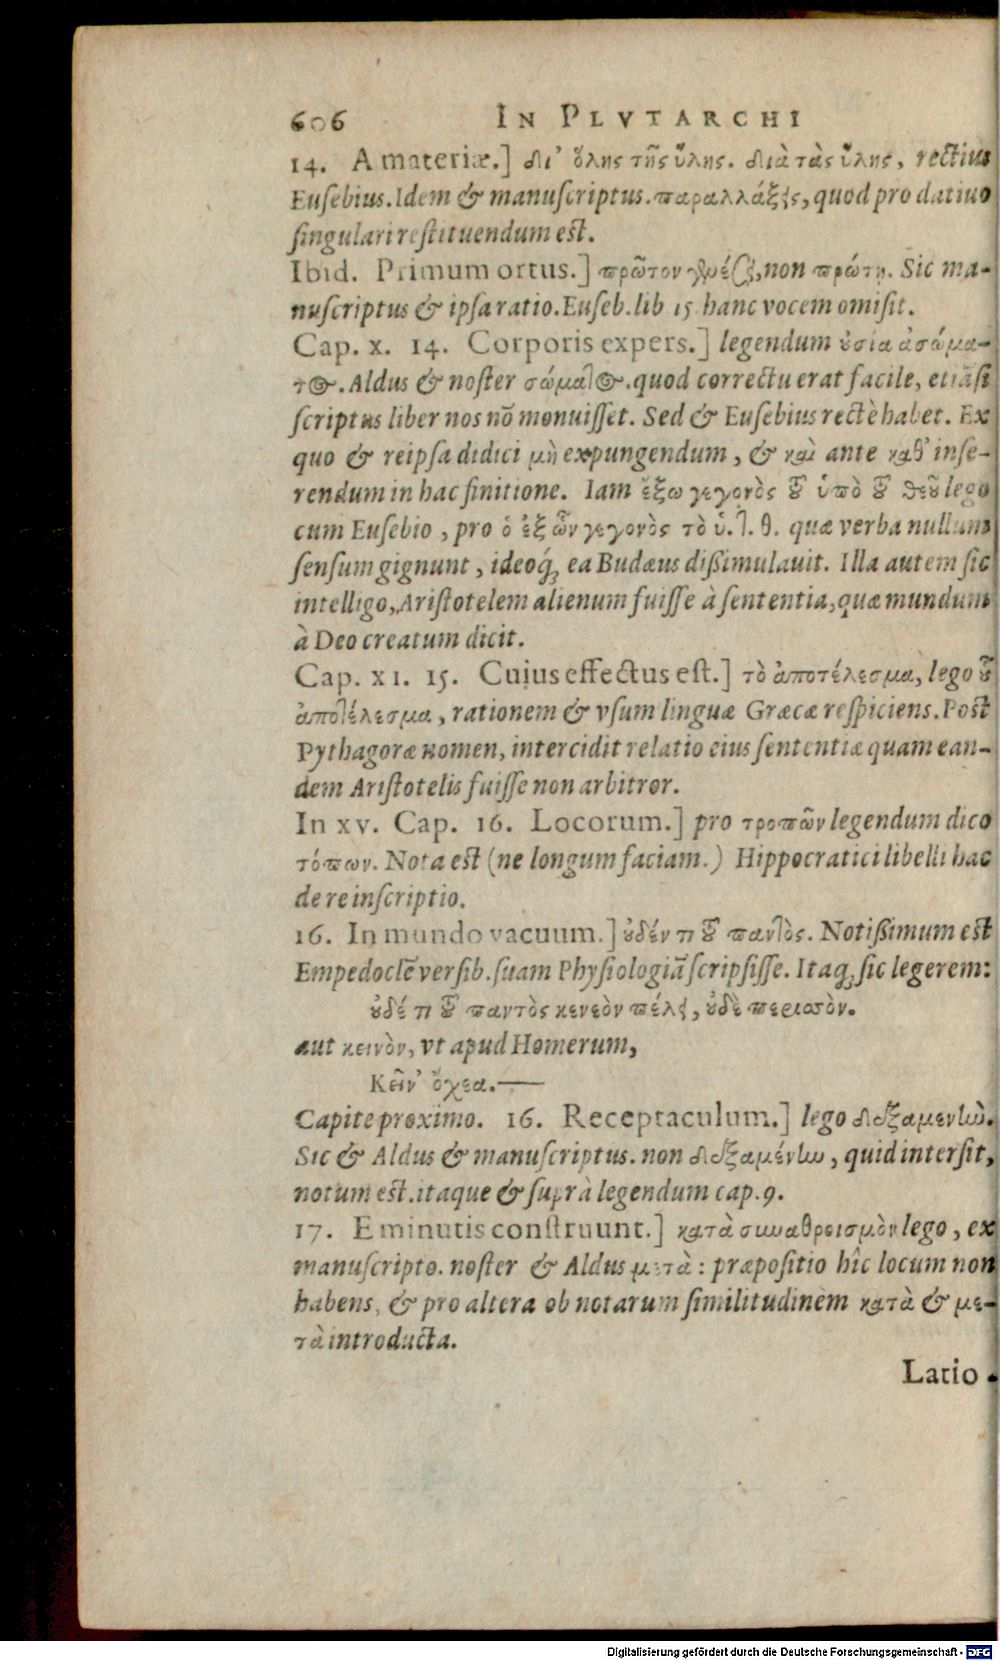 606 IN PLVTARCHI
14. A materiæ.] δι’ ὅλης τῆς ὕλης. διὰ τὰς ὕλης, rectius
Euſebius. Idem & manuſcriptus. παραλλάξεις, quod pro datiuo
ſingulari reſtituendum eſt.
Ibid. Primum ortus.] πρῶτον γένεσει, non πρώτη. Sic ma-
nuſcriptus & ipſa ratio. Euſeb. lib 15 hanc vocem omiſit.
Cap. x. 14. Corporis expers.] legendum ȣσία ἀσώμα-
τος. Aldus & noſter σώματος. quod correctu erat facile, etiāſi
ſcriptus liber nos nō monuiſſet. Sed & Euſebius rectè habet. Ex
quo & reipſa didici μὴ expungendum, & καὶ ante καθ’ inſe-
rendum in hac finitione. Iam ἔξω γεγονὸς τȣ͂ ὑπὸ τȣ͂ θεȣ͂ lego
cum Euſebio, pro ὁ ἐξ ὧν γεγονὸς τὸ ὑ. τ. θ. quæ verba nullum
ſenſum gignunt, ideoq́; ea Budæus dißimulauit. Illa autem ſic
intelligo, Ariſtotelem alienum fuiſſe à ſententia, quæ mundum
à Deo creatum dicit.
Cap. XI. 15. Cuius effectus eſt.] τὸ ἀποτέλεσμα, lego τȣ͂
ἀποτέλεσμα, rationem & vſum linguæ Græcæ reſpiciens. Poſt
Pythagoræ nomen, intercidit relatio eius ſententiæ quam ean-
dem Ariſtotelis fuiſſe non arbitror.
In xv. Cap. 16. Locorum.] pro τροπῶν legendum dico
τόπων. Nota eſt (ne longum faciam.) Hippocratici libelli hac
de re inſcriptio.
16. In mundo vacuum.] ȣδέν τι τȣ͂ παντὸς. Notißimum eſt
Empedoclē verſib. ſuam Phyſiologiā ſcripſiſſe. Itaq; ſic legerem:
ȣδέ τι τȣ͂ παντὸς κενεὸν πέλει, ȣδὲ περισσὸν.
aut κεινὸν, vt apud Homerum,
Κεῖν’ ὄχεα.——
Capite proximo. 16. Receptaculum.] lego δεξαμενὴν.
Sic & Aldus & manuſcriptus. non δεξαμένην, quid interſit,
notum eſt. itaque & ſuprà legendum cap. 9.
17. E minutis conſtruunt.] κατὰ συναθροισμὸν lego, ex
manuſcripto. noſter & Aldus μετὰ: præpoſitio hîc locum non
habens, & pro altera ob notarum ſimilitudinem κατὰ & με-
τὰ introducta.
Latio-
Digitalisierung gefördert durch die Deutsche Forschungsgemeinschaft - DFG